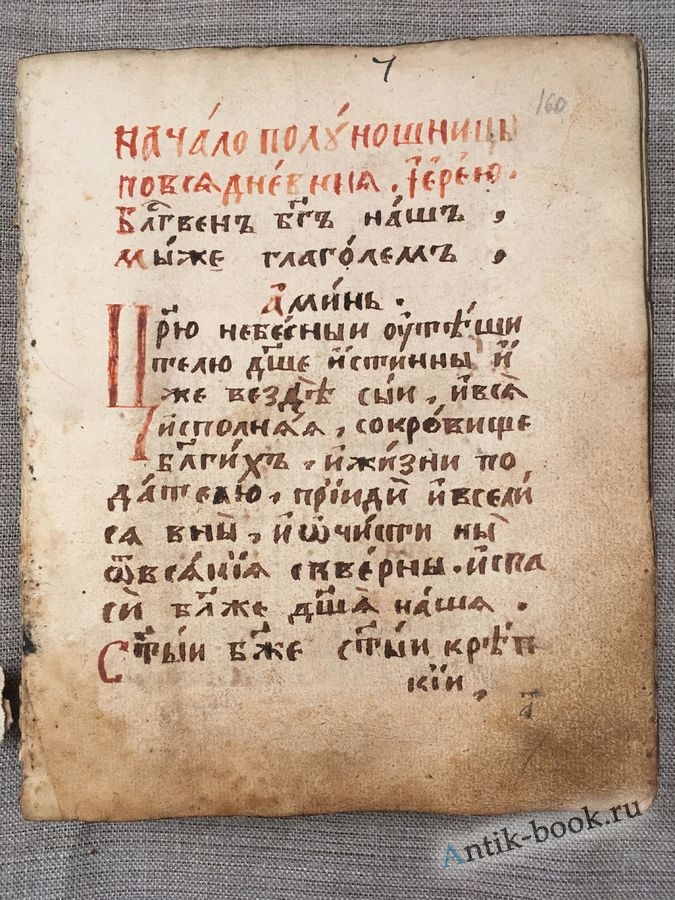 7
160
НАЧА́ЛО ПОЛУ́НОЩНИЦЫ
ПОВСѦДНЕ́ВНИѦ . І҆ЕРЕ́Ю .
Блг҃венъ бг҃ъ на́шъ ,
мы́же глаго́лемъ ,
Ами́нь .
Цр҃ю небе́сныи оутѣ́ши
телю дш҃е и҆́стинны и҆́
же вездѣ̀ сы́и , и҆всѧ̀
и҆сполнѧ́ѧ , сокро́вище
бл҃ги́хъ , и҆жи́зни по
да́телю , прїидѝ и҆всели́
сѧ вны̀ , и҆ѡчи́сти ны̀
ѿвсѧ́кїѧ скве́рны . и҆спа
сѝ бл҃же дш҃ѧ̀ на́шѧ .
Ст҃ы́и бж҃е ст҃ы́и крѣ́п
кїи ,
а҃
Antik-book.ru